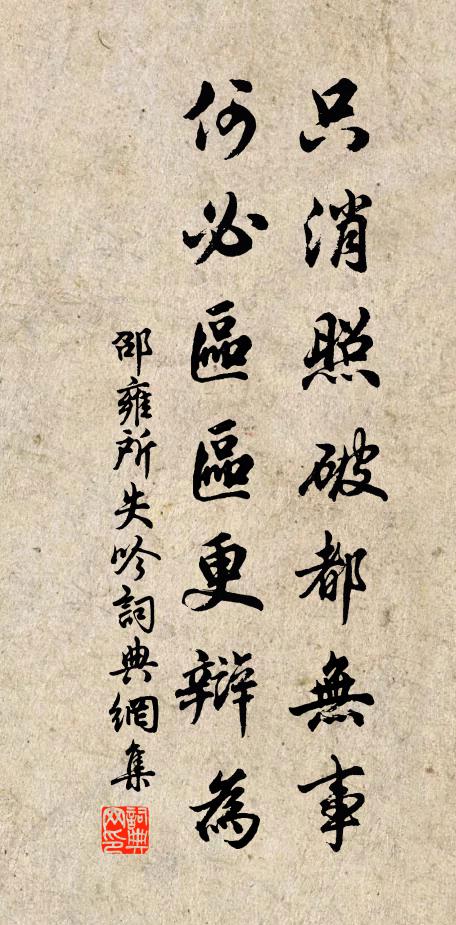 只消照破都無事
何必區區更辯為
邵雍所失吟詞典網集
詞典网印